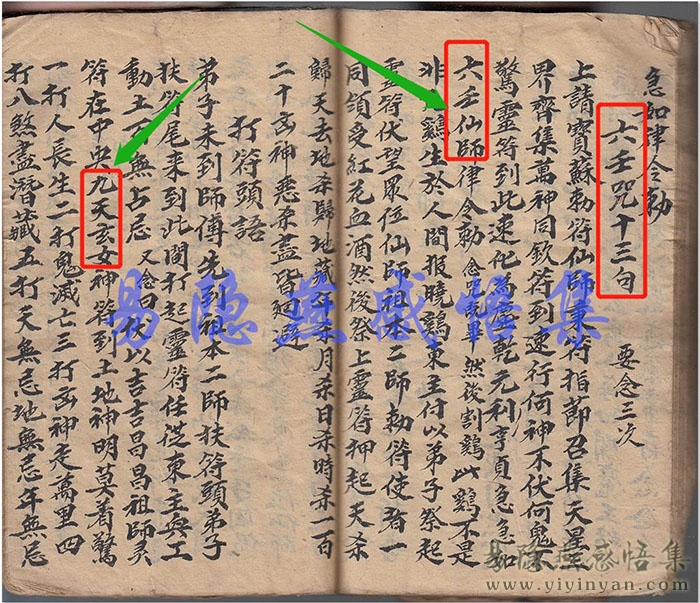 急如律令勅
六壬咒十三句 要念三次
上請寶蘇勅符仙師秉符指節召集天星
界齊集萬神同欽符到速行何神不伏何鬼
驚靈符到此速化為塵乾元利亨貞急急如
六壬仙師律令勅 念 畢 然後割鷄此鷄不是
非鷄生於人間报曉鷄東主付以弟子祭起
靈符皆伏望眾位仙師祖本二師勅符使者一
同領受紅花血酒然後祭上靈符押起天杀
歸天去地杀歸地藏年杀月杀日杀時杀一百
二十凶神惡杀盡皆廻避
打符頭語
弟子未到師傅先到祖本二師扶符頭弟子
扶符尾来到此間打起靈符任從東主興工
動土百無占忌 又念曰伏以吉吉昌昌祖師灵
符在中央九天玄女神符到土地神明莫着驚
一打人長生二打鬼滅亡三打凶神走萬里四
打八煞盡潛藏五打天無忌地無忌年無忌
易隐燕感悟集
易隐燕感悟集
www.yiyinyan.com